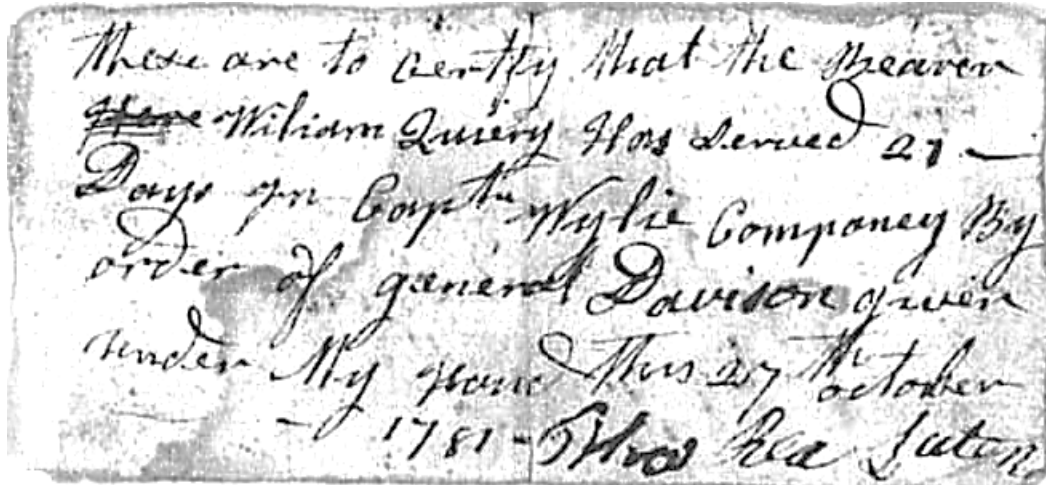 these are to Certify that the Bearer
Here Wiliam Quiery Has Served 21 —
Days in Captn Wylie Companey By
order of general Davison given
under My Hand This 27th october
1781 - Thos Rea Luten